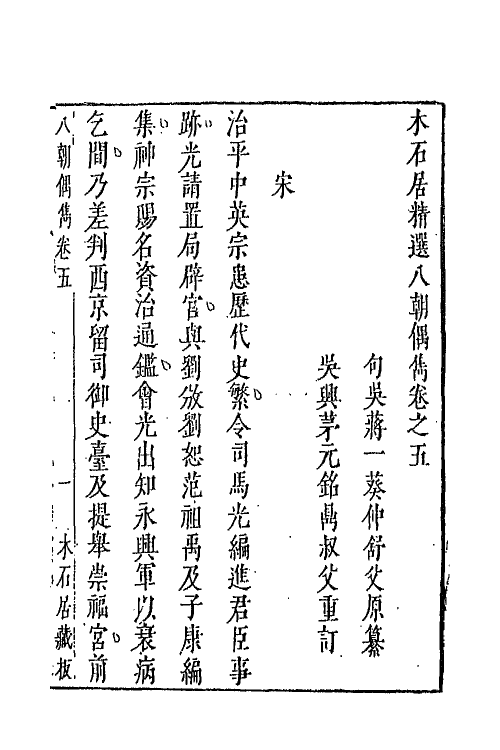 木石居精選八朝偶雋卷之五
句吳蔣一葵仲舒父原纂
吳興茅元銘鼎叔父重訂
宋
治平中英宗患歷代史繁令司馬光編進君臣事
跡光請置局辟官與劉攽劉恕范祖禹及子康編
集神宗賜名資治通鑑會光出知永興軍以衰病
乞間乃差判西京留司御史臺及提舉崇福宮前
八朝偶雋卷五
一
木石居藏板